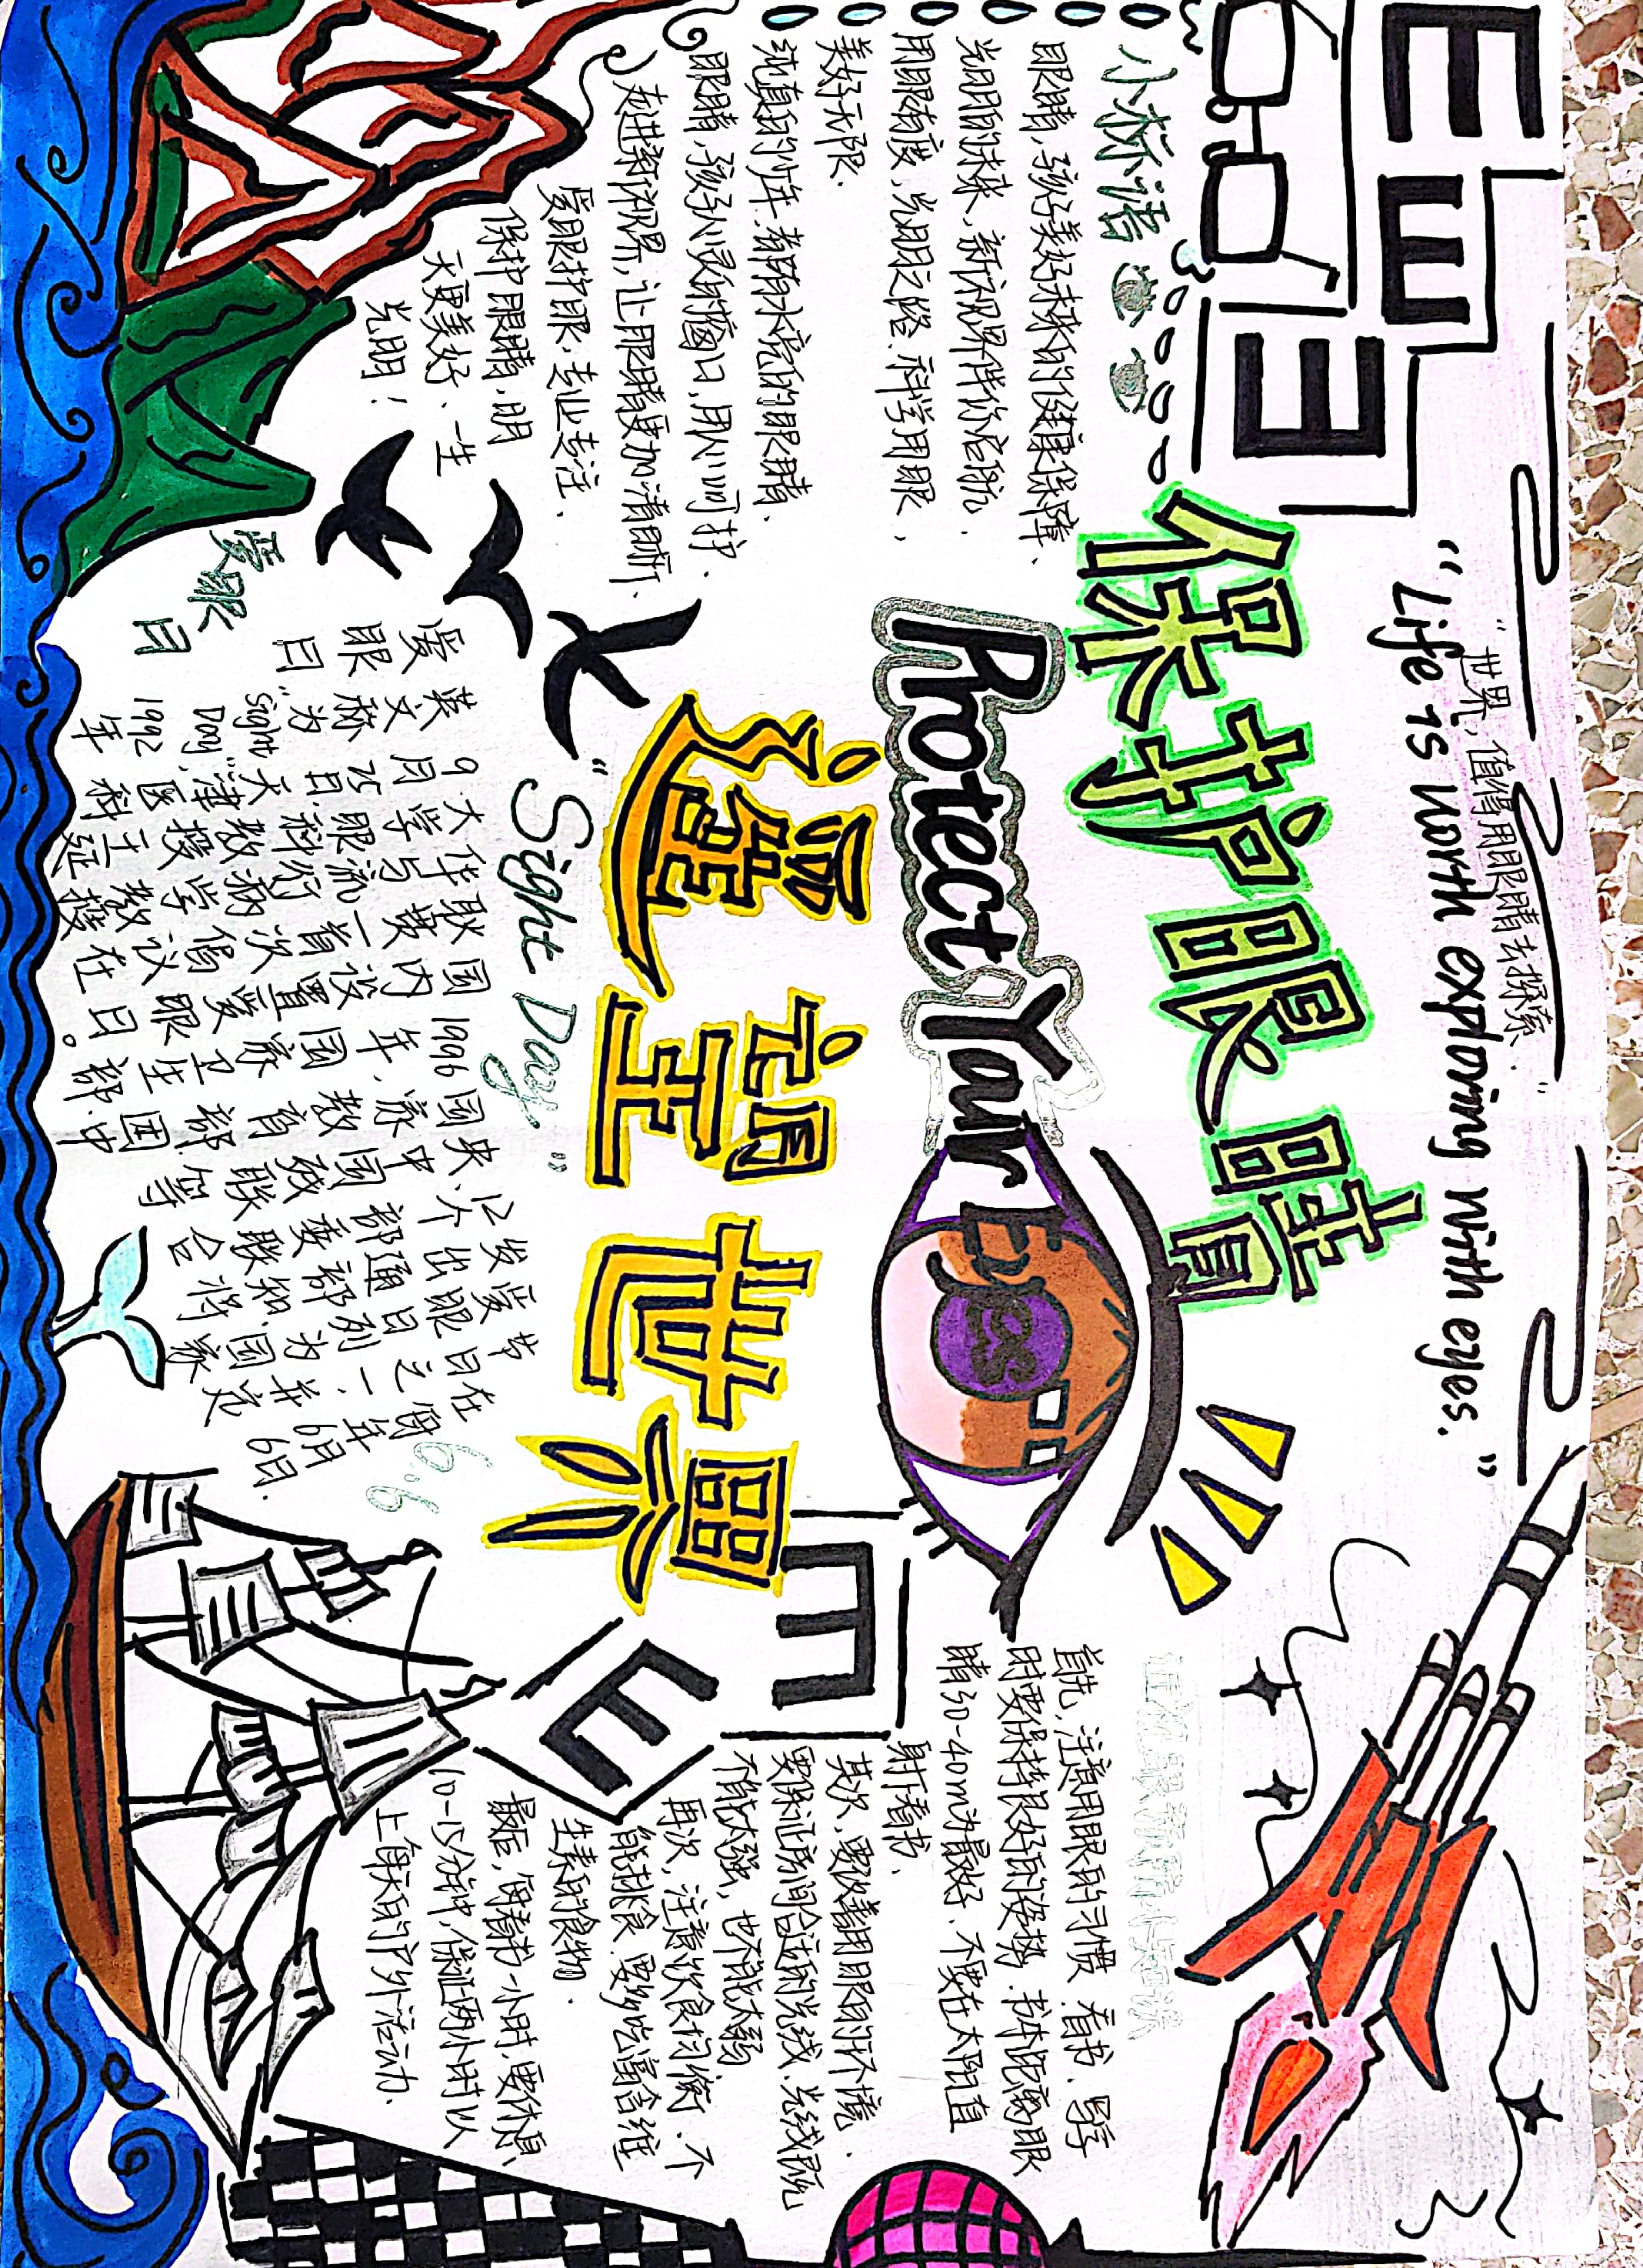 "世界，值得用眼睛去探索."
"Life is worth exploring with eyes."
E
E
E
保护眼睛
Protect Your Eyes
遥望世界
小标语
眼睛，孩子美好未来的健康保障、
光明的未来、新视界伴你启航.
用眼有度，光明之路.科学用眼、
美好无限.
纯真的少年.都有水亮的眼睛.
眼睛，孩子心灵的窗口，用心呵护.
走进新视界，让眼睛更加清晰.
爱眼护眼.专业专注.
保护眼睛，明
天更美好.一生
光明！
"Sight Day."
爱眼日
爱眼日
英文称为"Sight Day,"1992年
9月25日.天津医科
大学眼科教授王延
华与流行病学教授
耿贯一首次倡议在
国内设置爱眼日。
1996年、国家卫生部.
国家教育部.团中
央.中国残联等
12个部委联合
发出通知.将
爱眼日列为国家
节日之一、并定
在每年6月6日.
6.6
E
E
首先，注意用眼的习惯.看书.写字
时要保持良好的姿势.书本距离眼
睛30-40m为最好.不要在太阳直
射下看书.
其次，要改善用眼的环境.
要保证房间合适的光线、光线既
不能太强，也不能太弱
再次，注意饮食均衡.不
能挑食.要多吃富含维
生素的食物.
最后，每看书一小时，要休息
10-15分钟，保证两小时以
上每天的户外活动.